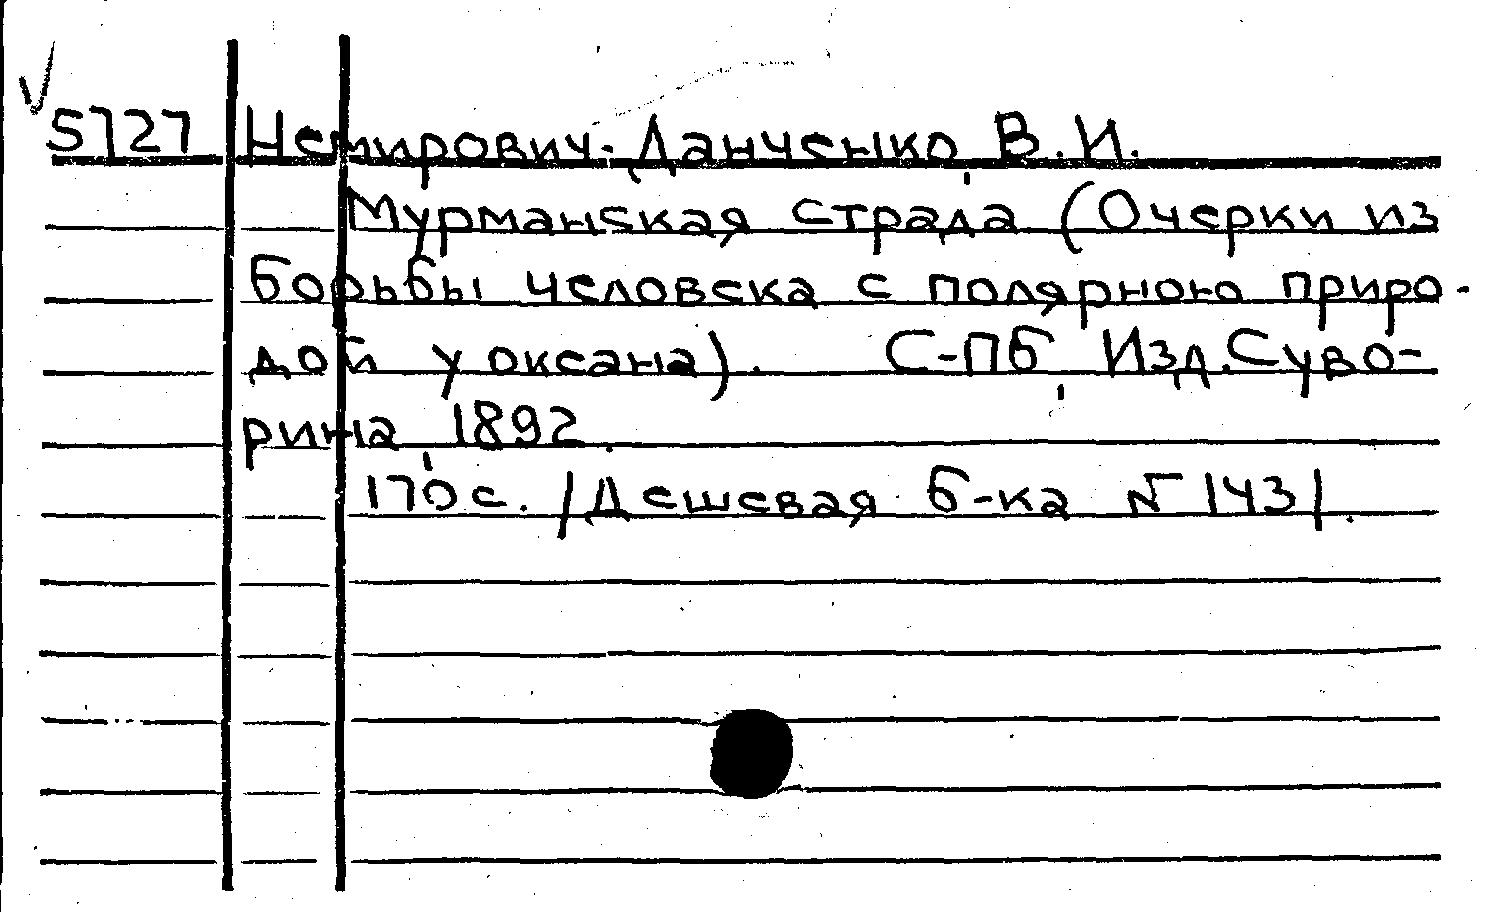 5727 Немирович-Данченко, В.И.
Мурманская страда (Очерки из
борьбы человека с полярною приро-
дой у океана). С-Пб, Изд.Суво-
рина, 1892.
170 с. /Дешевая б-ка № 143/.